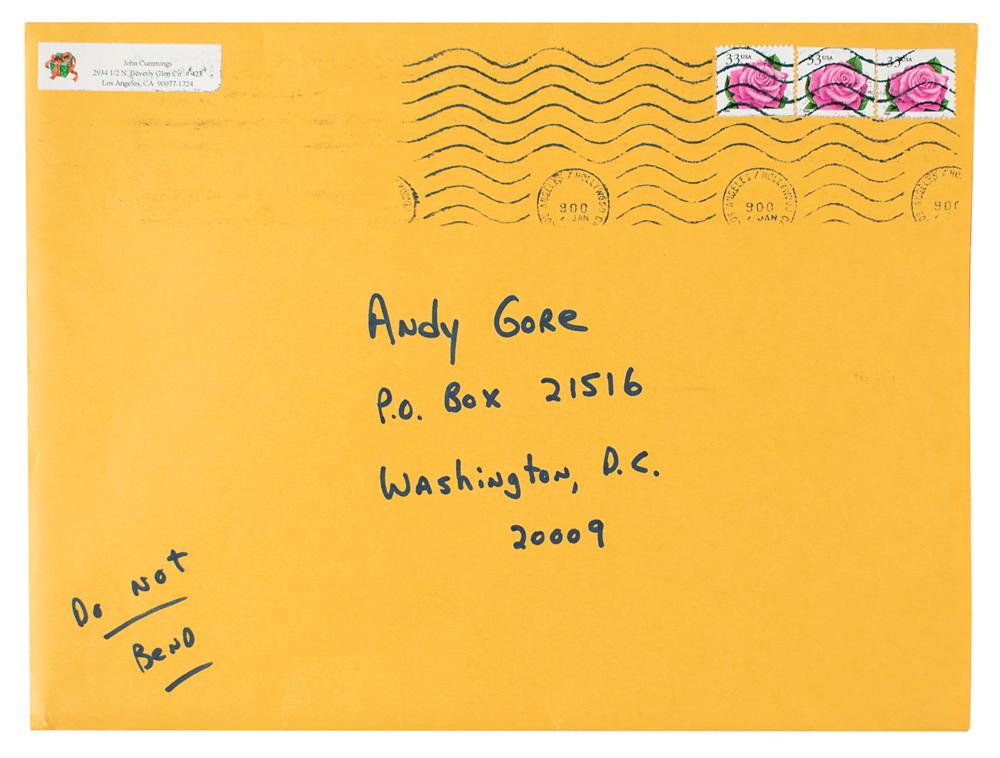 John Cummings
2934 1/2 N. Beverly Glen Cir. # 423
Los Angeles, CA 90077-1724
33 USA
33 USA
33 USA
LOS ANGELES / HOLLYWOOD
900
JAN
LOS ANGELES / HOLLYWOOD
900
JAN
900
JAN
Andy Gore
P.O. Box 21516
Washington, D.C.
20009
Do Not
Bend